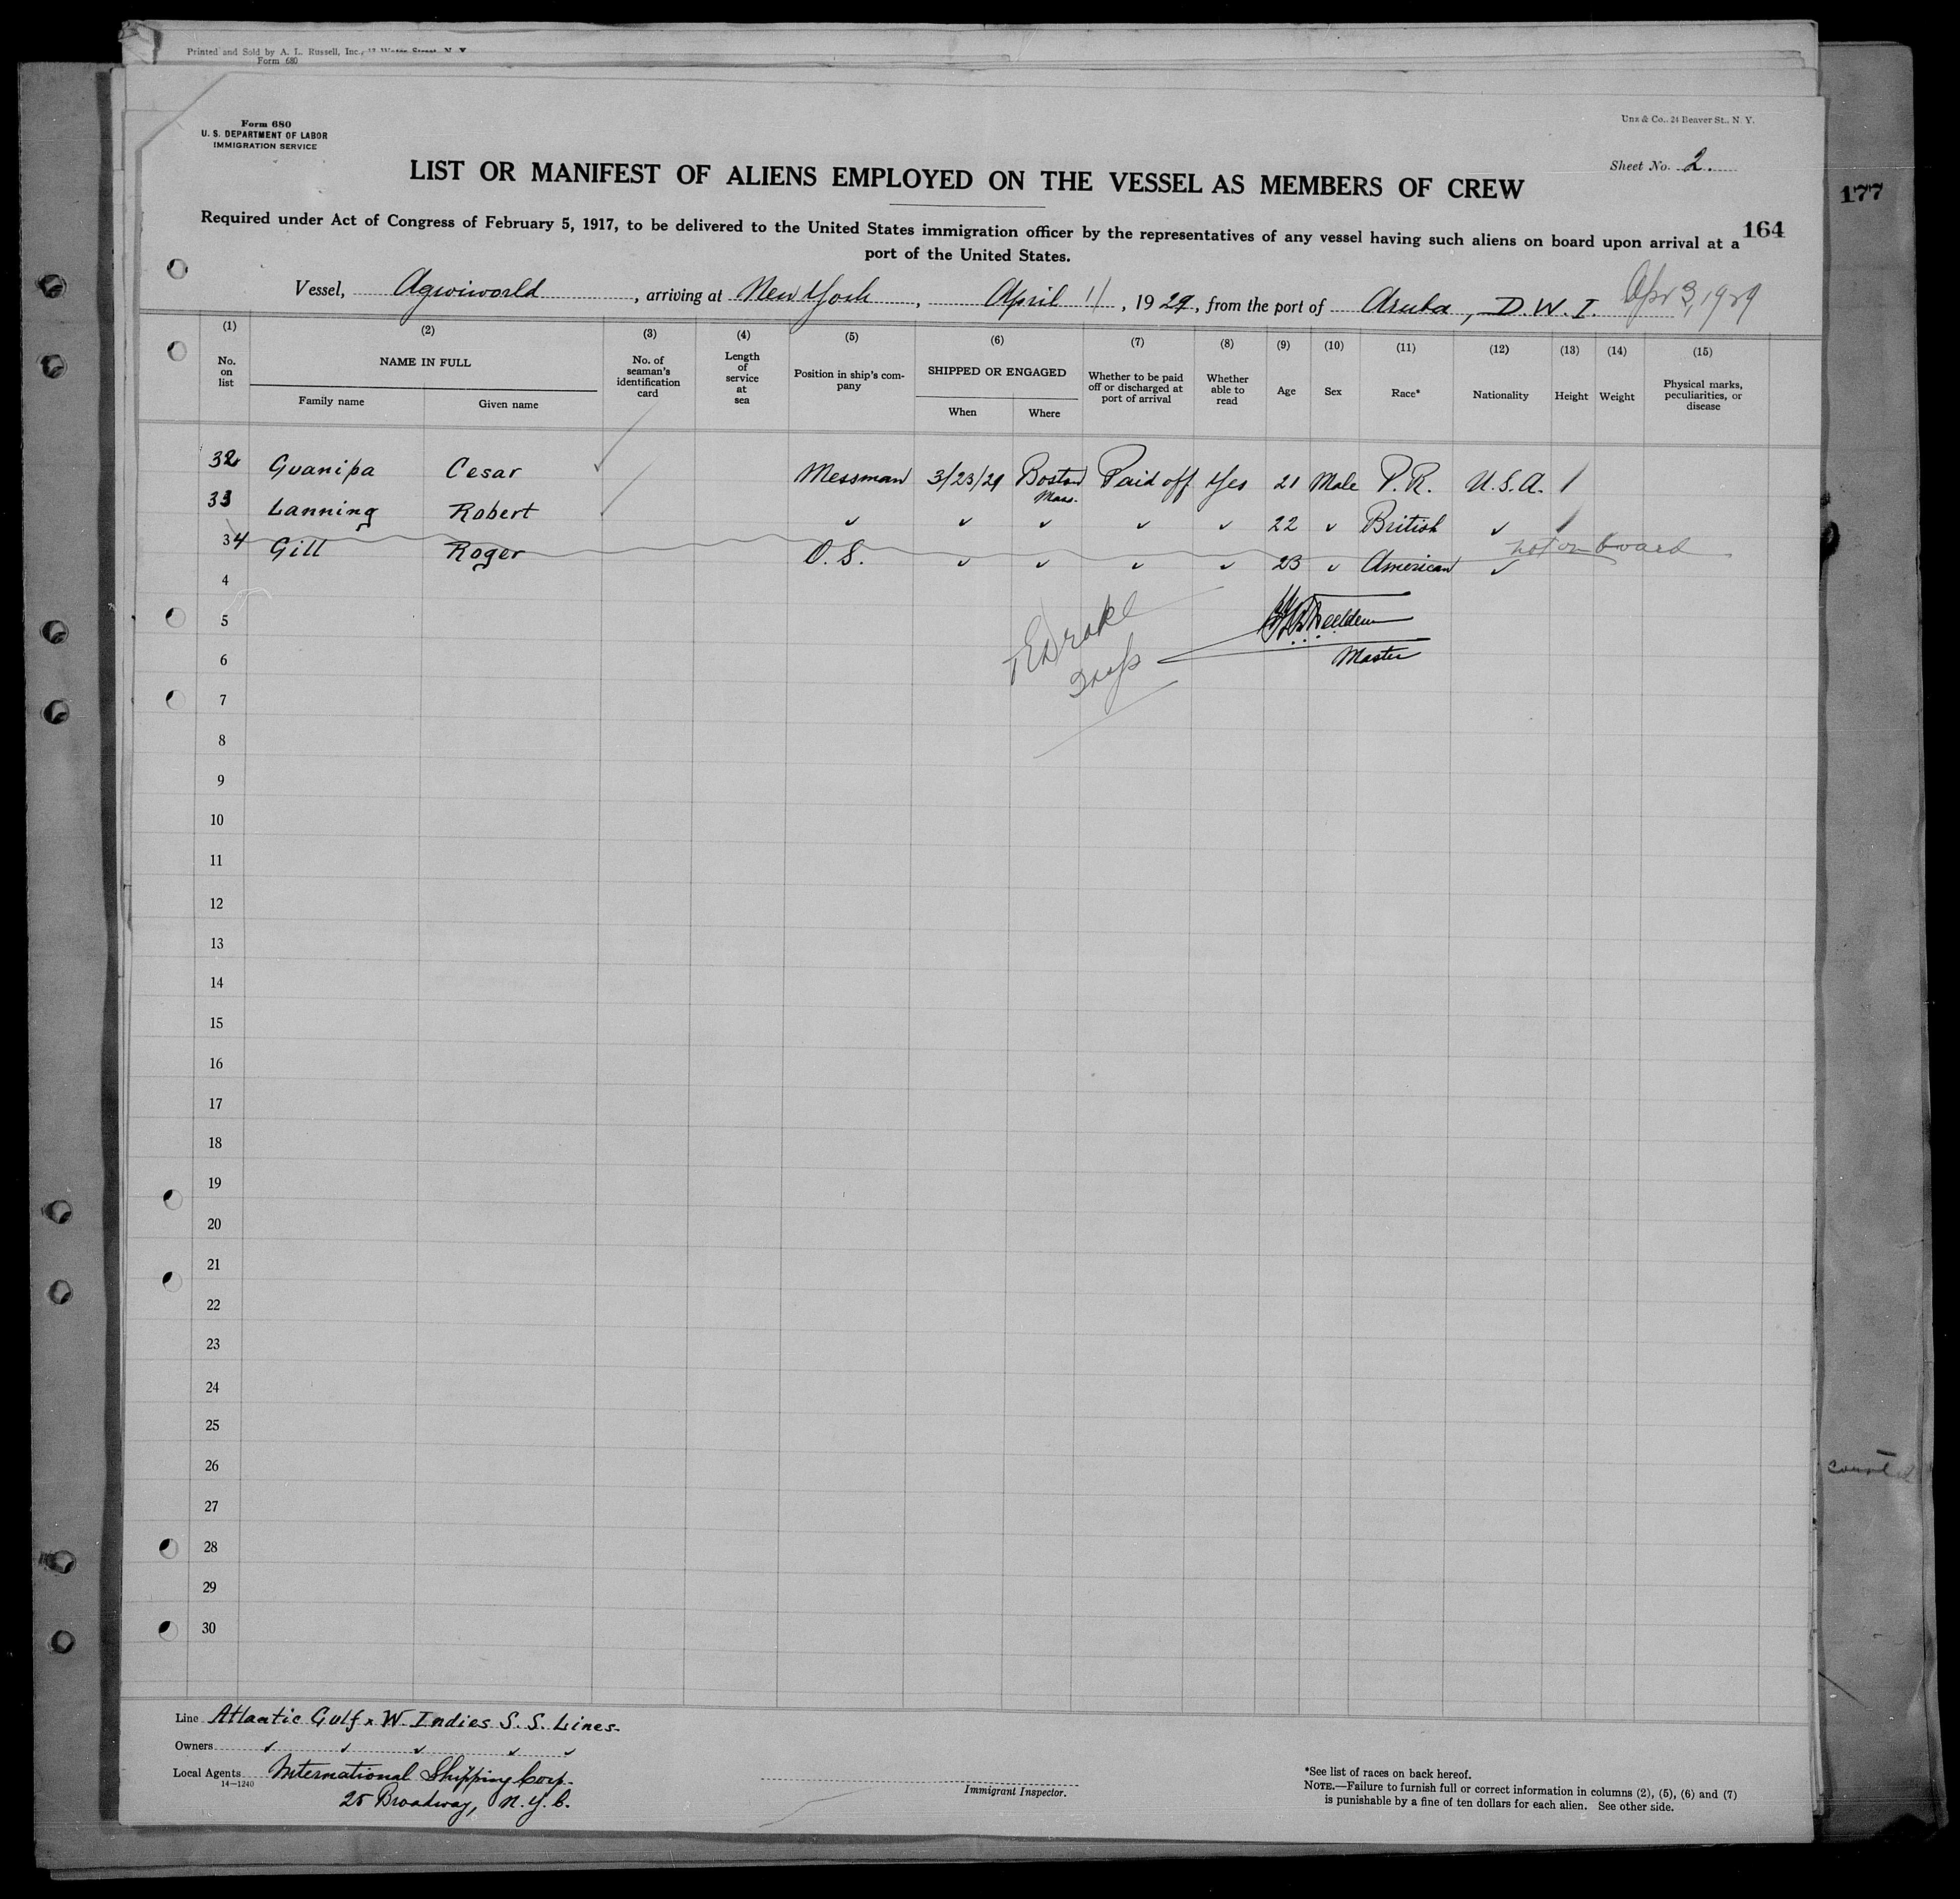 Printed and Sold by A. L. Russell, Inc.,
Form 680
Form 680
U. S. DEPARTMENT OF LABOR
IMMIGRATION SERVICE
Unz & Co., 24 Beaver St., N. Y.
Sheet No. 2.
177
LIST OR MANIFEST OF ALIENS EMPLOYED ON THE VESSEL AS MEMBERS OF CREW
Required under Act of Congress of February 5, 1917, to be delivered to the United States immigration officer by the representatives of any vessel having such aliens on board upon arrival at a
port of the United States.
164
Vessel, Agwiworld, arriving at New York, April 11, 1929, from the port of Aruba, D. W. I. Apr 3, 1929
(1) (2) (3) (4) (5) (6) (7) (8) (9) (10) (11) (12) (13) (14) (15)
No. on list
NAME IN FULL
Family name Given name
No. of seaman's identification card
Length of service at sea
Position in ship's company
SHIPPED OR ENGAGED
When Where
Whether to be paid off or discharged at port of arrival
Whether able to read
Age
Sex
Race*
Nationality
Height
Weight
Physical marks, peculiarities, or disease
32 Guanipa Cesar Messman 3/23/29 Boston Mass. Paid off Yes 21 Male P.R. U.S.A.
33 Lanning Robert ✓ ✓ ✓ ✓ ✓ 22 ✓ British ✓
34 Gill Roger O.S. ✓ ✓ ✓ ✓ 23 ✓ American ✓ not on board
4
5
6
Drake
Insp
Master
7
8
9
10
11
12
13
14
15
16
17
18
19
20
21
22
23
24
25
26
27
28
29
30
Line Atlantic Gulf & W. Indies S. S. Lines.
Owners ✓ ✓ ✓ ✓ ✓
Local Agents International Shipping Corp.
14—1240
25 Broadway, N.Y.C.
Immigrant Inspector.
*See list of races on back hereof.
NOTE.—Failure to furnish full or correct information in columns (2), (5), (6) and (7)
is punishable by a fine of ten dollars for each alien. See other side.